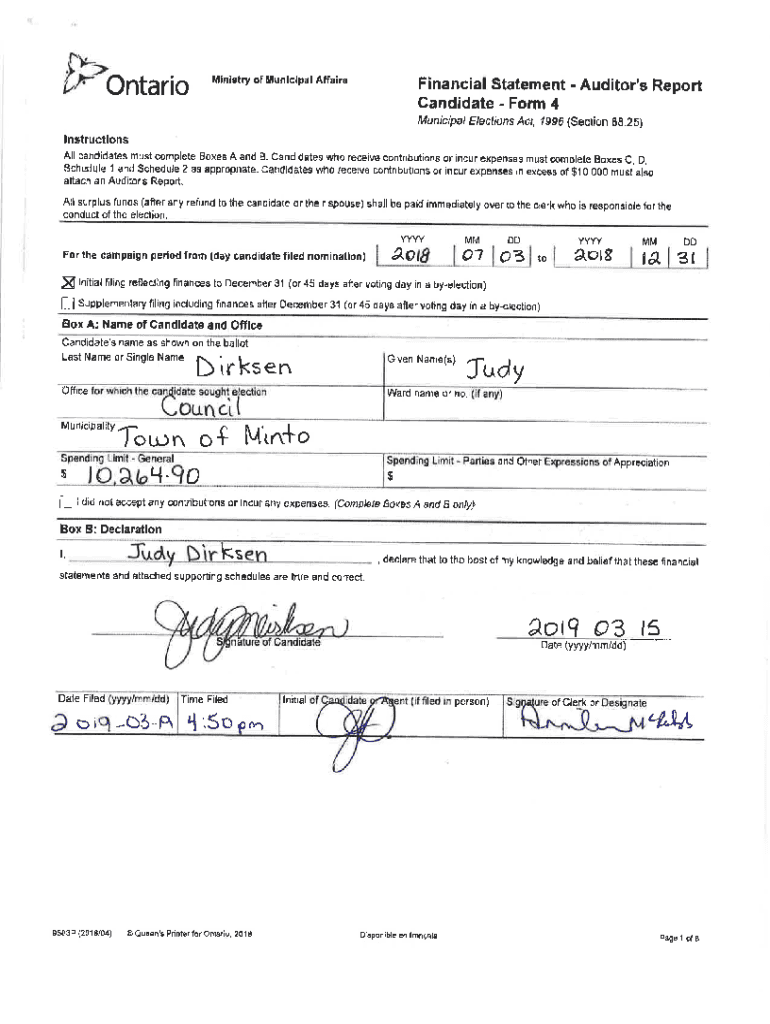 Ontario
Ministry of Municipal Affairs
Financial Statement - Auditor's Report
Candidate - Form 4
Municipal Elections Act, 1996 (Section 88.25)
Instructions
All candidates must complete Boxes A and B. Candidates who receive contributions or incur expenses must complete Boxes C, D,
Schedule 1 and Schedule 2 as appropriate. Candidates who receive contributions or incur expenses in excess of $10 000 must also
attach an Auditor's Report.
All surplus funds (after any refund to the candidate or their spouse) shall be paid immediately over to the clerk who is responsible for the
conduct of the election.
YYYY MM DD YYYY MM DD
For the campaign period from (day candidate filed nomination) 2018 07 03 to 2018 12 31
Initial filing reflecting finances to December 31 (or 45 days after voting day in a by-election)
Supplementary filing including finances after December 31 (or 45 days after voting day in a by-election)
Box A: Name of Candidate and Office
Candidate's name as shown on the ballot
Last Name or Single Name Dirksen Given Name(s) Judy
Office for which the candidate sought election Ward name or no. (if any)
Council
Municipality
Town of Minto
Spending Limit - General Spending Limit - Parties and Other Expressions of Appreciation
$ 10,264.90 $
I did not accept any contributions or incur any expenses. (Complete Boxes A and B only)
Box B: Declaration
I, Judy Dirksen, declare that to the best of my knowledge and belief that these financial
statements and attached supporting schedules are true and correct.
2019 03 15
Signature of Candidate Date (yyyy/mm/dd)
Date Filed (yyyy/mm/dd) Time Filed Initial of Candidate or Agent (if filed in person) Signature of Clerk or Designate
2019-03- 4:50pm
9503P (2018/04) © Queen's Printer for Ontario, 2018 Disponible en français Page 1 of 8